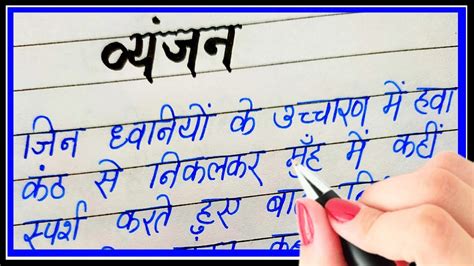 व्यंजन
जिन ध्वनियों के उच्चारण में हवा
कंठ से निकलकर मुँह में कहीं
स्पर्श करते हुए